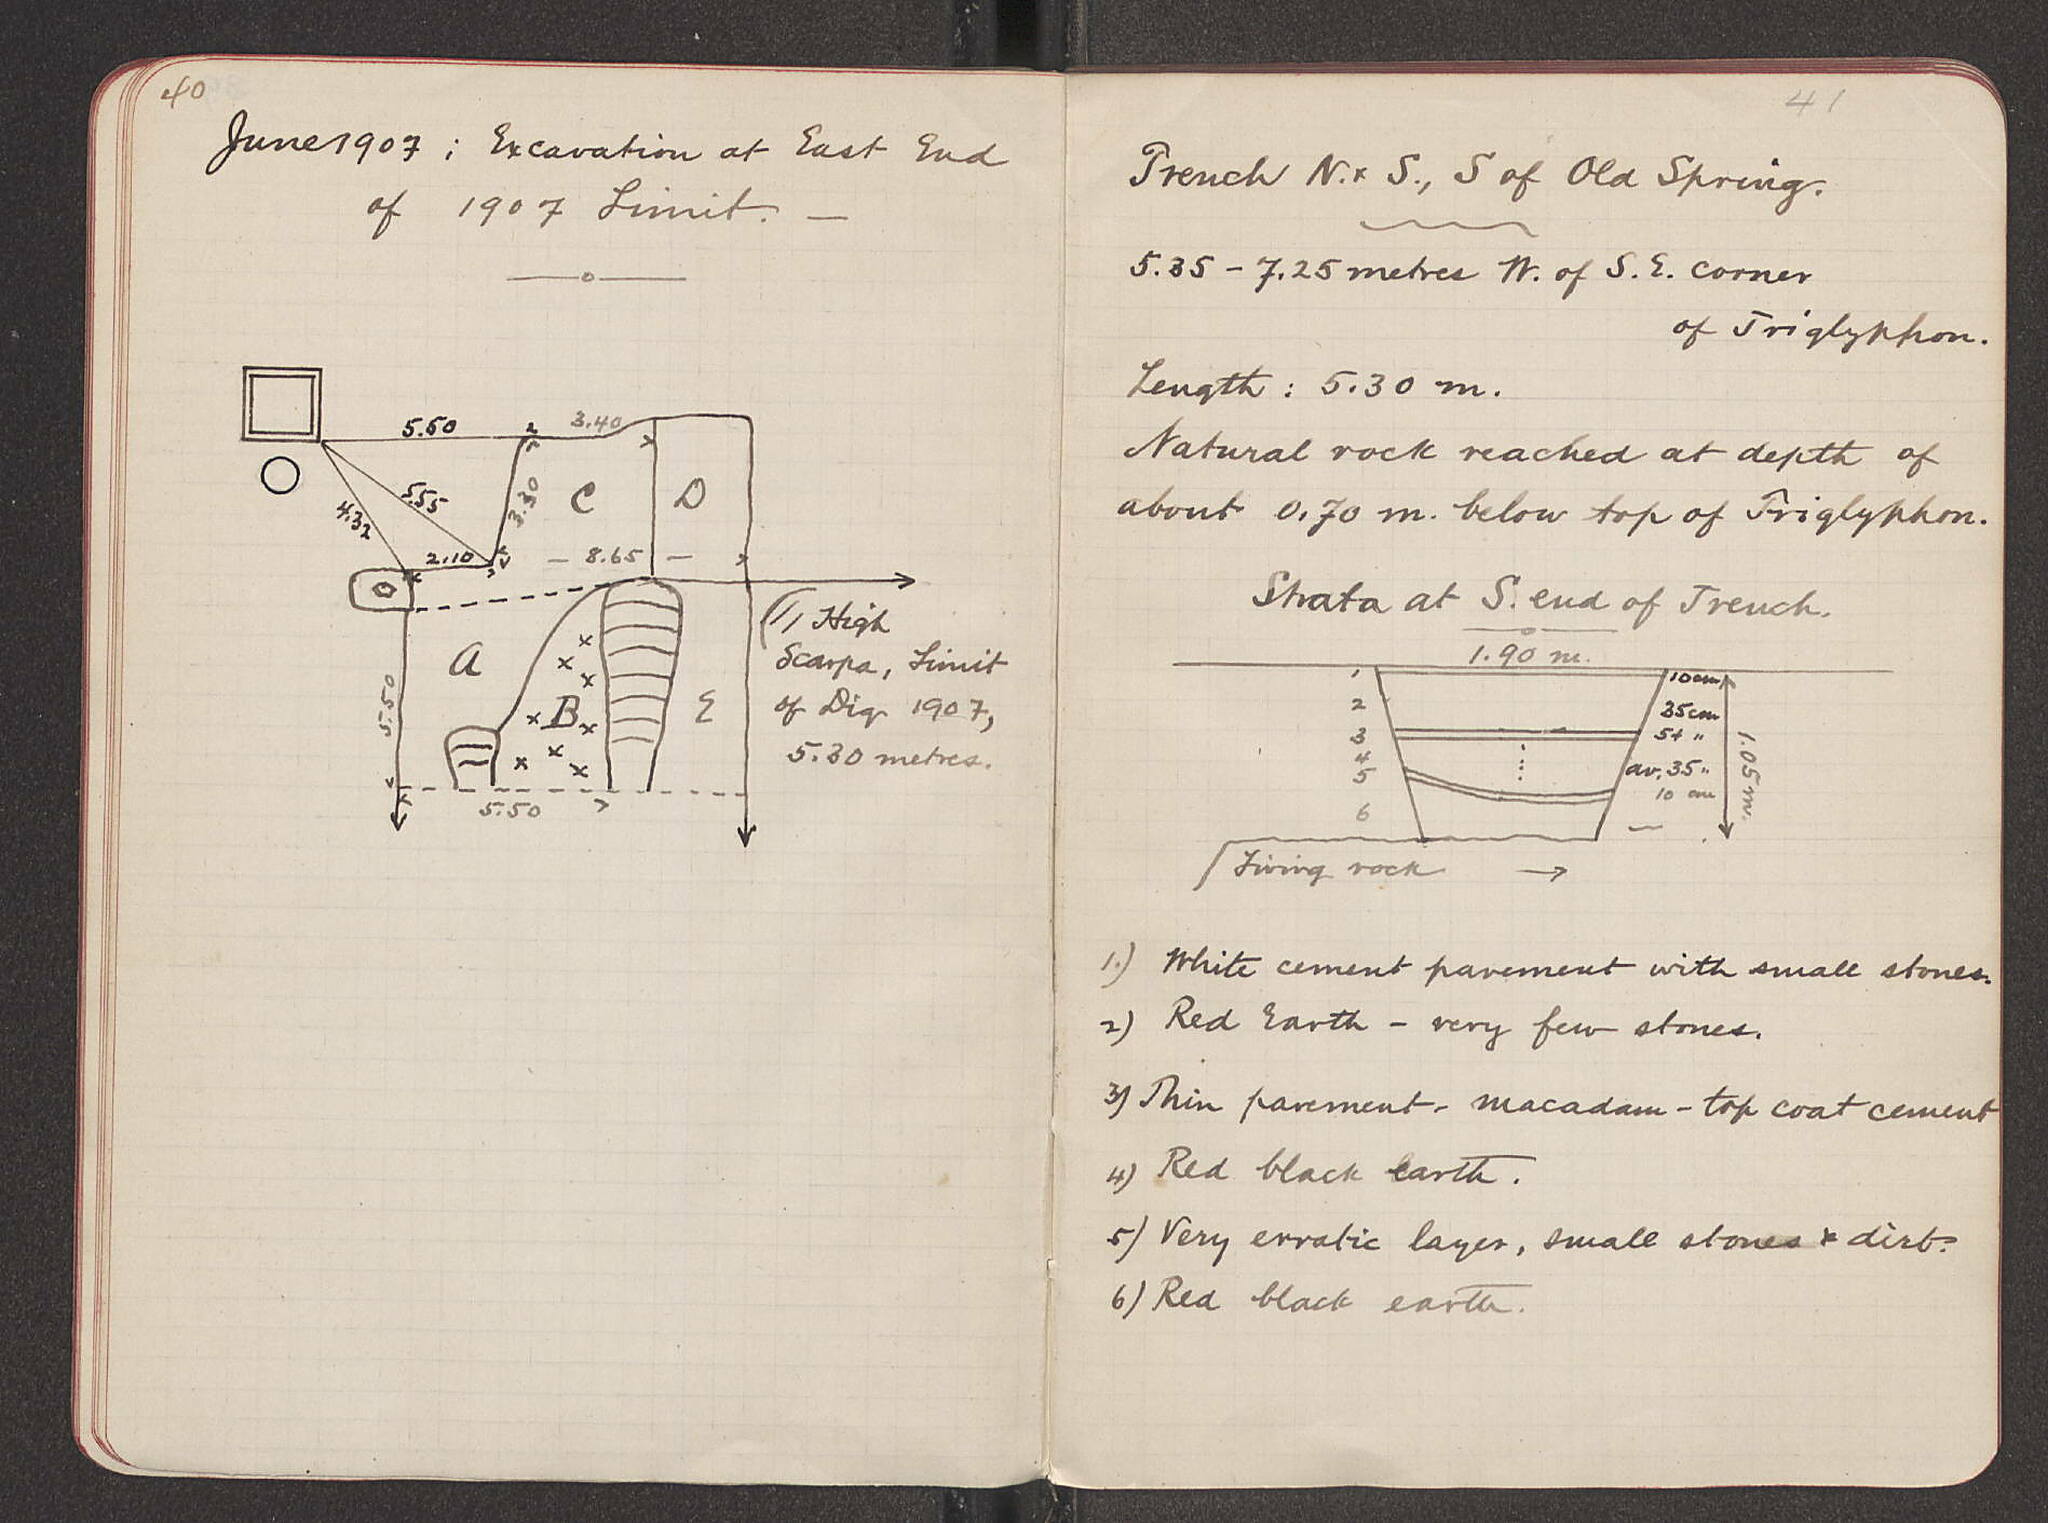 40
June 1907; Excavation at East End
of 1907 Limit. —
5.50
3.40
5.55
4.32
3.30
C
D
2.10
— 8.65 —
A
B
E
5.50
5.50
High
Scarpa, Limit
of Dig 1907,
5.30 metres.
41
Trench N. & S., S of Old Spring.
5.35 - 7.25 metres W. of S.E. corner
of Triglyphon.
Length: 5.30 m.
Natural rock reached at depth of
about 0.70 m. below top of Triglyphon.
Strata at S. end of Trench.
1.90 m.
1 10 cm
2 35 cm
3 5+ "
4 av. 35 "
5 10 cm
6 —
1.05 m.
Living rock →
1.) White cement pavement with small stones.
2) Red Earth - very few stones.
3) Thin pavement - macadam - top coat cement
4) Red black earth.
5) Very erratic layer, small stones & dirt.
6) Red black earth.